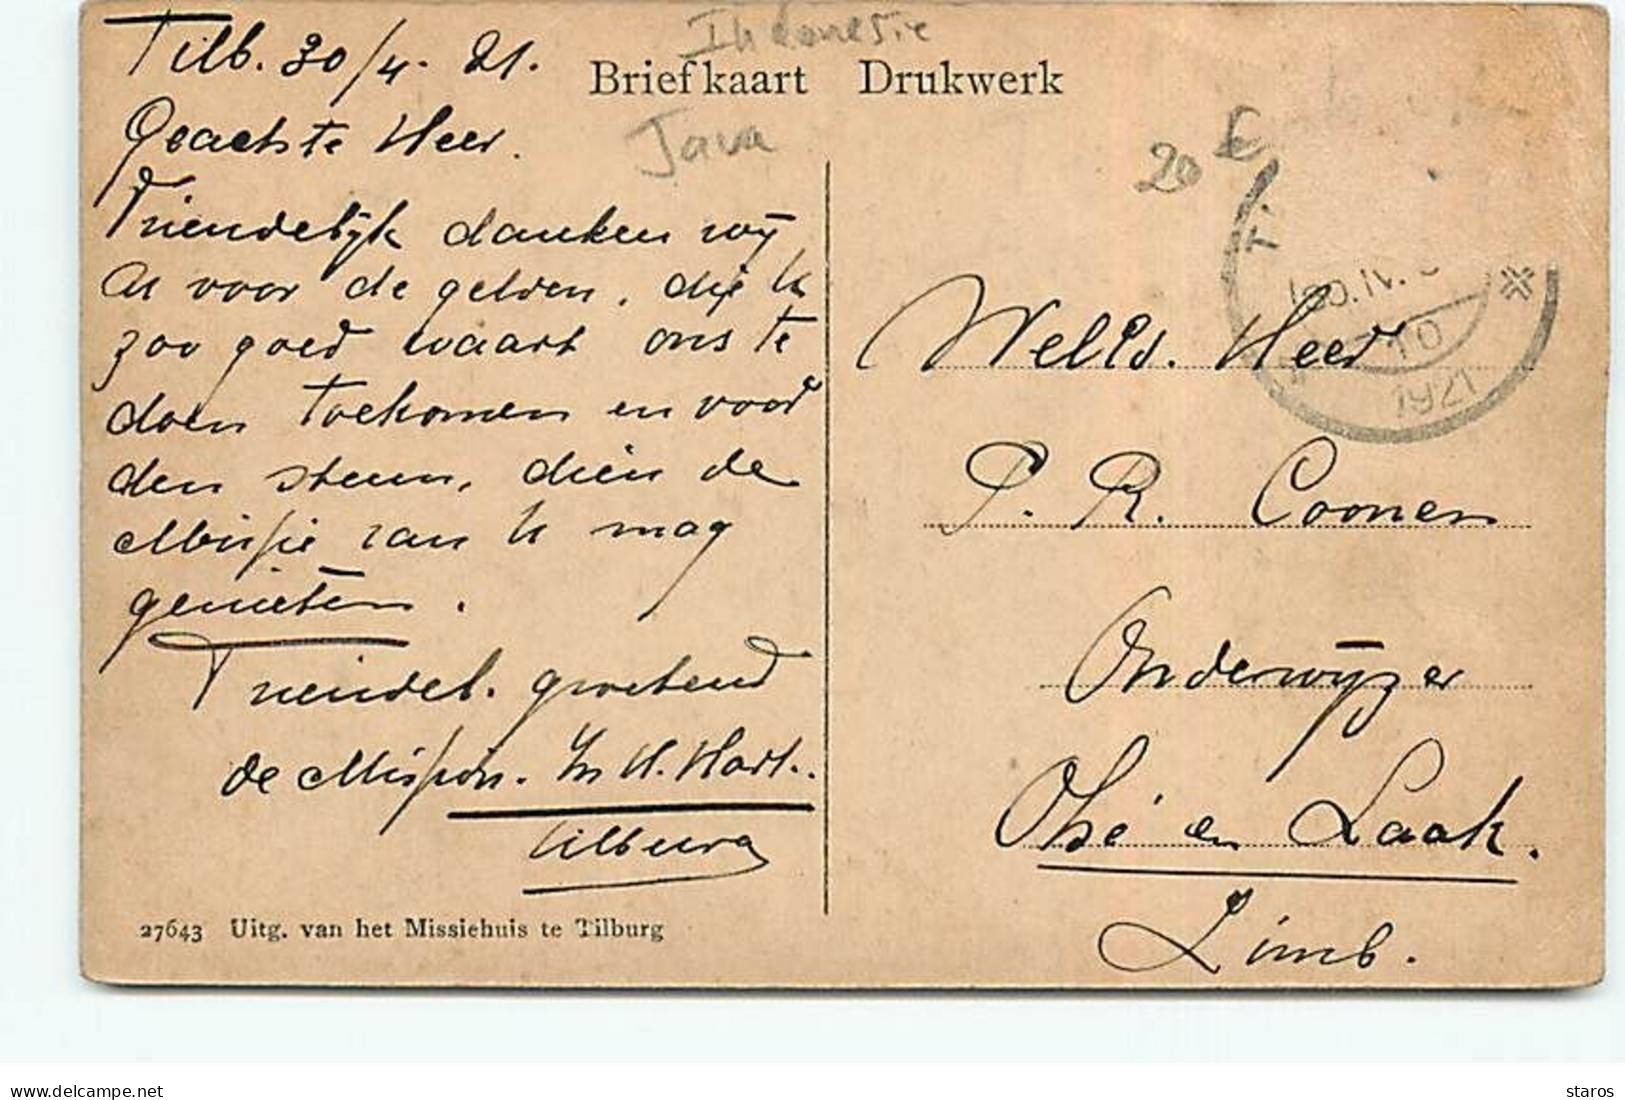 Tilb. 30/4. 21.
Geachte Heer.
Vriendelijk danken wij
U voor de gelden, die U
zoo goed waart ons te
doen toekomen en voor
den steun, dien de
Missie van U mag
genieten.
Vriendel. groetend
de Mission. v. h. H. Hart.
Tilburg
27643 Uitg. van het Missiehuis te Tilburg
Indonesie
Briefkaart Drukwerk
Java
20 €
T.
30.IV.
10
1921
WelEd. Heer
P. R. Coonen
Onderwijzer
Ohé en Laak.
Limb.
www.delcampe.net
staros